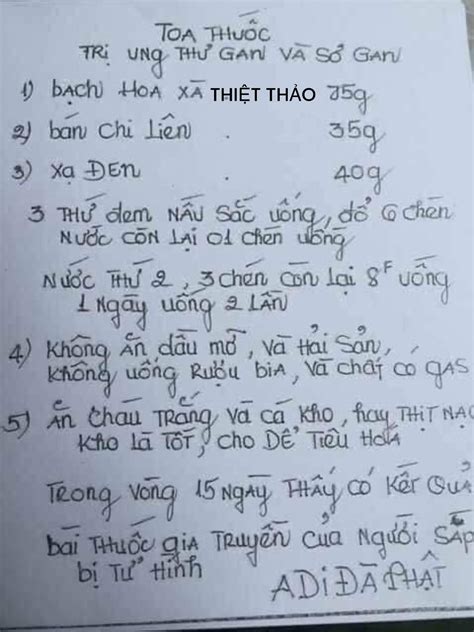 TOA THUỐC
TRỊ UNG THƯ GAN VÀ SỞ GAN
1) bẠCH HOA XÀ THIỆT THẢO 35g
2) bán Chi Liên . 35g
3) Xạ ĐEN . 40g
3 THỨ đem NẤU SẮC UỐNG, đổ 6 Chén
NƯỚC CÒN LẠI 01 Chén UỐNG
NƯỚC THỨ 2, 3 Chén CÒN LẠI 8F UỐNG
1 NGÀY UỐNG 2 LẦN
4) KHÔNG ĂN DẦU MỠ, VÀ HẢI SẢN,
KHÔNG UỐNG RƯỢU BIA, VÀ CHẤT CÓ GAS
5) ĂN CHÁU TRẮNG VÀ CÁ KHO, hay THỊT NẠC
KHO LÀ TỐT, CHO DỂ TIÊU HOÁ
TRONG VÒNG 15 NGÀY THẤY CÓ KẾT QUẢ
bài THUỐC GIA TRUYỀN CỦA NGƯỜI SẮP
bị TỬ HÌNH
A DI ĐÀ PHẬT